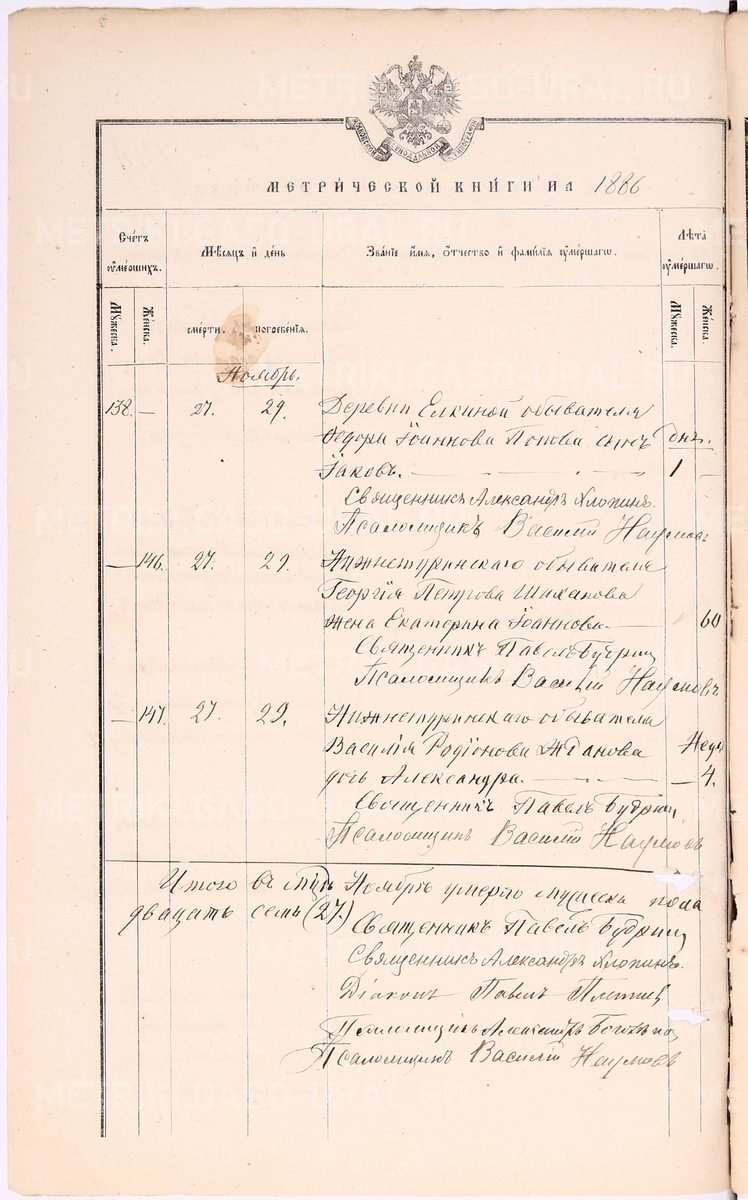 МОСКОВСКОЙ СИНОДАЛЬНОЙ ТИПОГРАФІИ
МЕТРИ́ЧЕСКОЙ КНИ́ГИ НА 1886
Сче́тъ оуме́ршихъ.
Мѣ́сяцъ и де́нь
Зва́нїе и́мя, о́тчество и фами́лїя оуме́ршагѡ.
Лѣ́та оуме́ршагѡ.
Мꙋ́жеска.
Же́нска.
сме́рти.
погребе́нїя.
Мꙋ́жеска.
Же́нска.
Ноябрь.
138. — 27. 29. Деревни Елкиной обывателя
Ѳедора Іоаннова Попова сынъ дн.
Іаковъ. — 1 —
Священникъ Александръ Хлопинъ.
Псаломщикъ Василій Наумовъ
— 146. 27. 29. Нижнетуринскаго обывателя
Георгія Петрова Шихалова
жена Екатерина Іоаннова. — 60
Священникъ Павелъ Будринъ
Псаломщикъ Василій Наумовъ
— 147. 27. 29. Нижнетуринскаго обывателя
Василія Родіонова Жданова Нед.
дочь Александра. — — 4.
Священникъ Павелъ Будринъ
Псаломщикъ Василій Наумовъ
Итого въ мцѣ Ноябрѣ умерло мужеска пола
двадцать семь (27.)
Священникъ Павелъ Будринъ
Священникъ Александръ Хлопинъ.
Діаконъ Павелъ
Псаломщикъ Александръ
Псаломщикъ Василій Наумовъ
METRIKI.GASO-URAL.RU